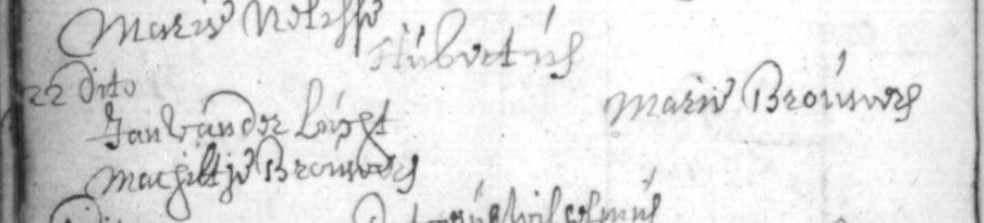 Maria
Hubertus
22 Dito
Jan van der Lugt
Maria Brouwers
Machiltje Brouwers
Wilhelmus